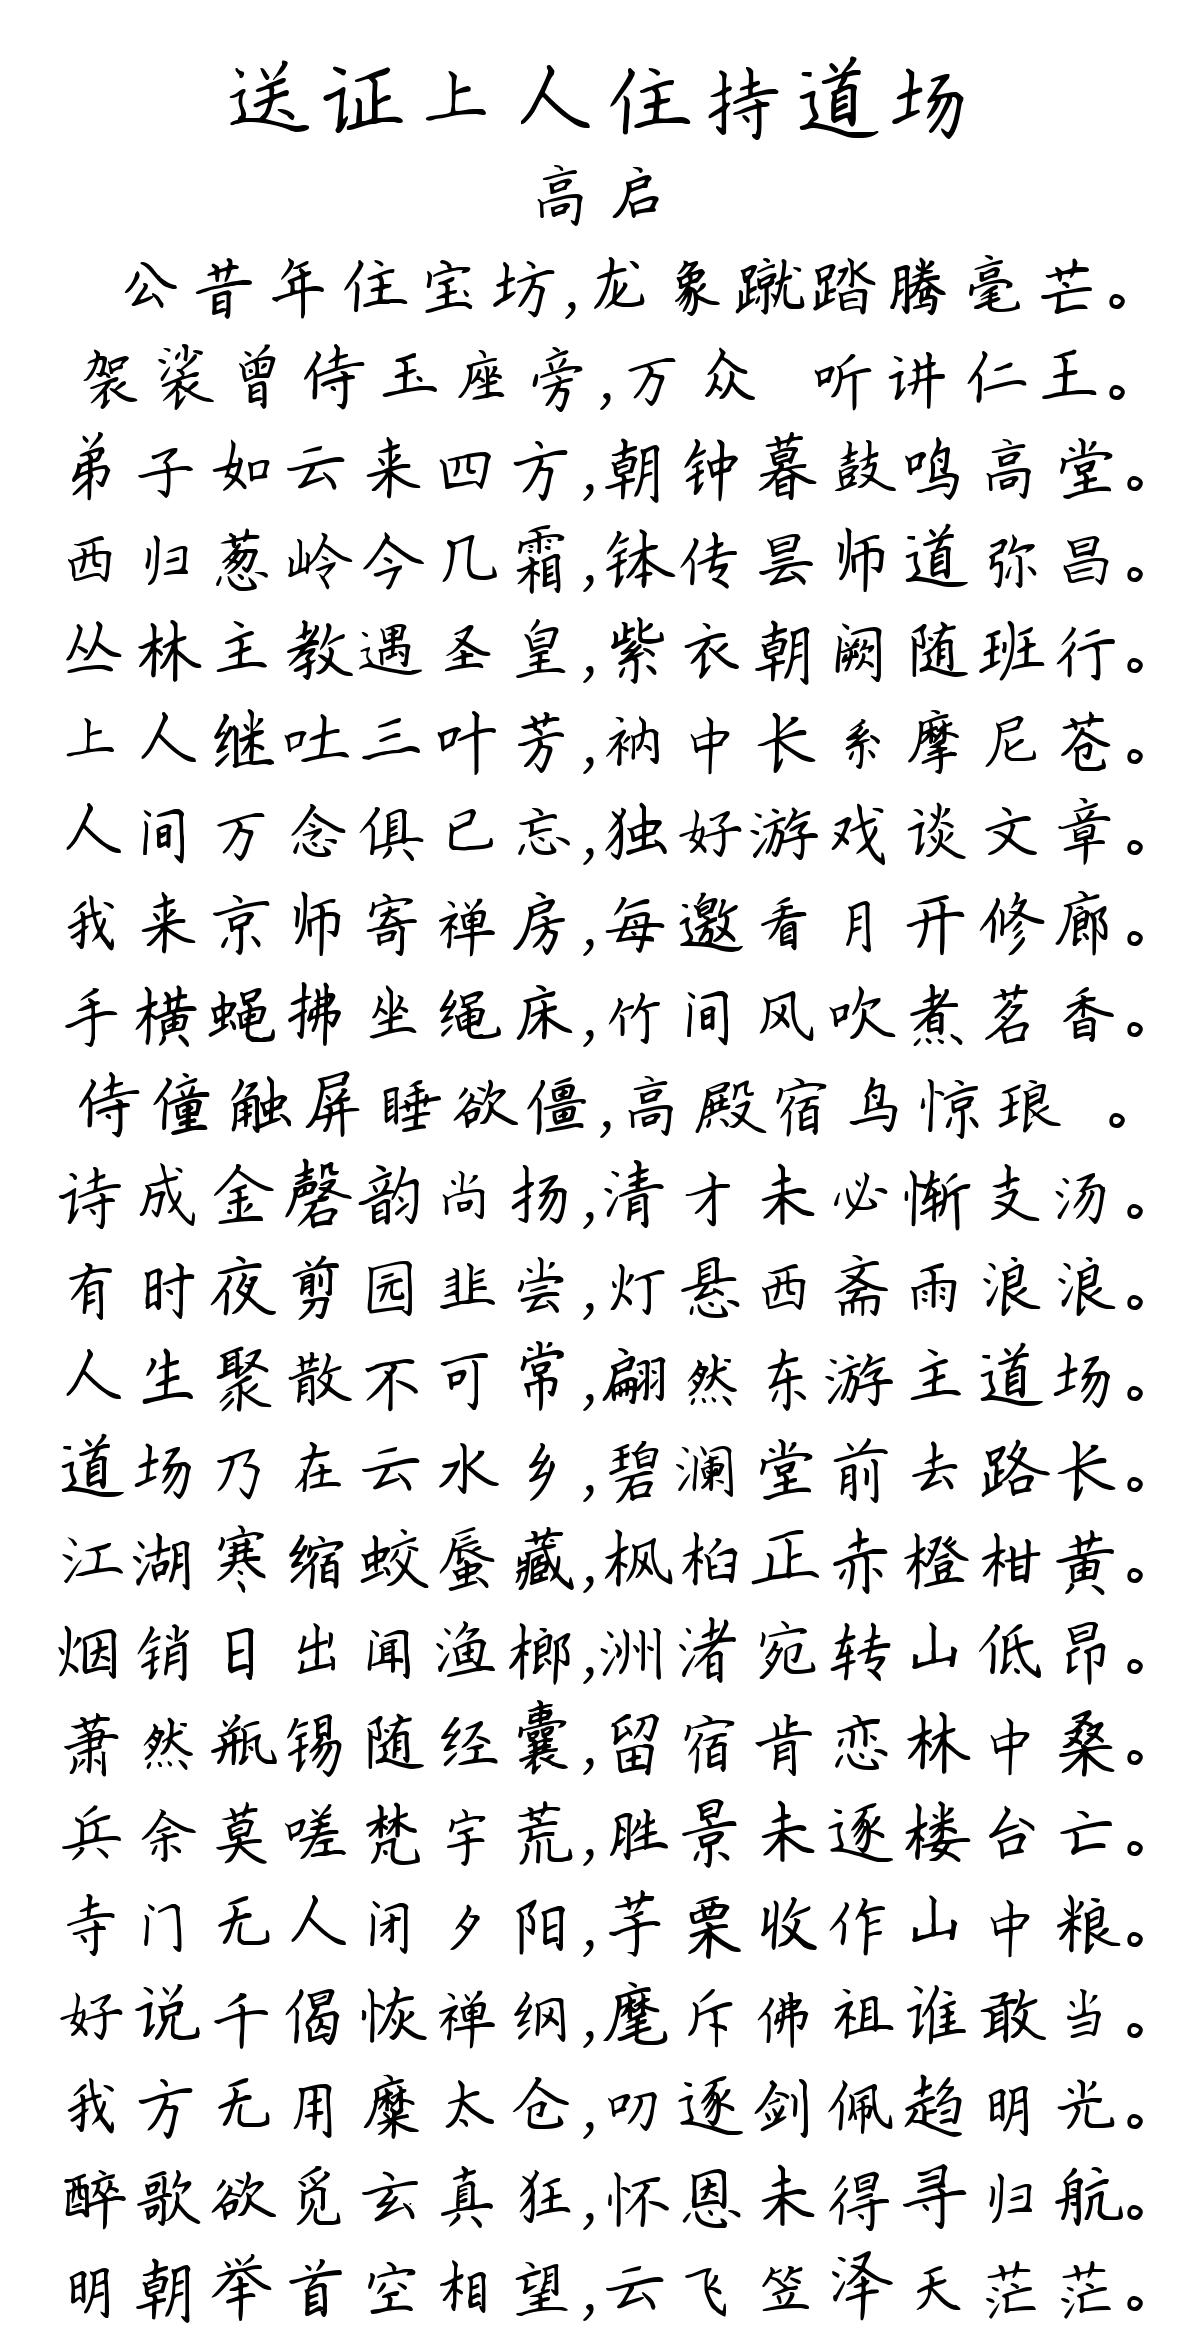 送证上人住持道场
高启
公昔年住宝坊,龙象蹴踏腾毫芒。
袈裟曾侍玉座旁,万众 听讲仁王。
弟子如云来四方,朝钟暮鼓鸣高堂。
西归葱岭今几霜,钵传昙师道弥昌。
丛林主教遇圣皇,紫衣朝阙随班行。
上人继吐三叶芳,衲中长系摩尼苍。
人间万念俱已忘,独好游戏谈文章。
我来京师寄禅房,每邀看月开修廊。
手横蝇拂坐绳床,竹间风吹煮茗香。
侍僮触屏睡欲僵,高殿宿鸟惊琅 。
诗成金磬韵尚扬,清才未必惭支汤。
有时夜剪园韭尝,灯悬西斋雨浪浪。
人生聚散不可常,翩然东游主道场。
道场乃在云水乡,碧澜堂前去路长。
江湖寒缩蛟蜃藏,枫桕正赤橙柑黄。
烟销日出闻渔榔,洲渚宛转山低昂。
萧然瓶锡随经囊,留宿肯恋林中桑。
兵余莫嗟梵宇荒,胜景未逐楼台亡。
寺门无人闭夕阳,芋栗收作山中粮。
好说千偈恢禅纲,麾斥佛祖谁敢当。
我方无用糜太仓,叨逐剑佩趋明光。
醉歌欲觅玄真狂,怀恩未得寻归航。
明朝举首空相望,云飞笠泽天茫茫。